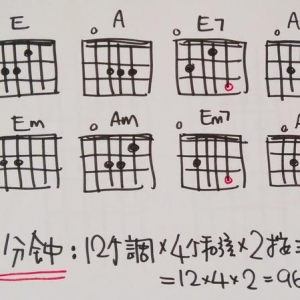 E A E7 A
Em Am Em7 A
1分钟:12个調×4个和弦×2按
=12×4×2=96